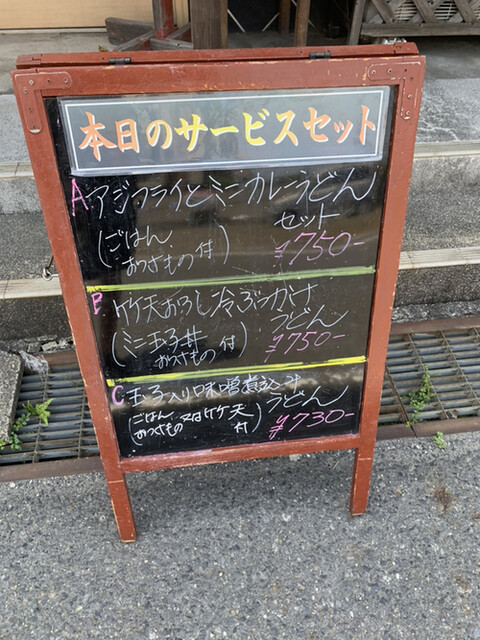 本日のサービスセット
A アジフライとミニカレーうどん
セット
(ごはん
おつけもの付)
¥750-
B 竹天おろし冷ぶっかけ
うどん
(ミニ玉子丼
おつけもの 付)
¥750-
C 玉子入り味噌煮込み
うどん
(ごはん 又は竹天
おつけもの 付)
¥730-